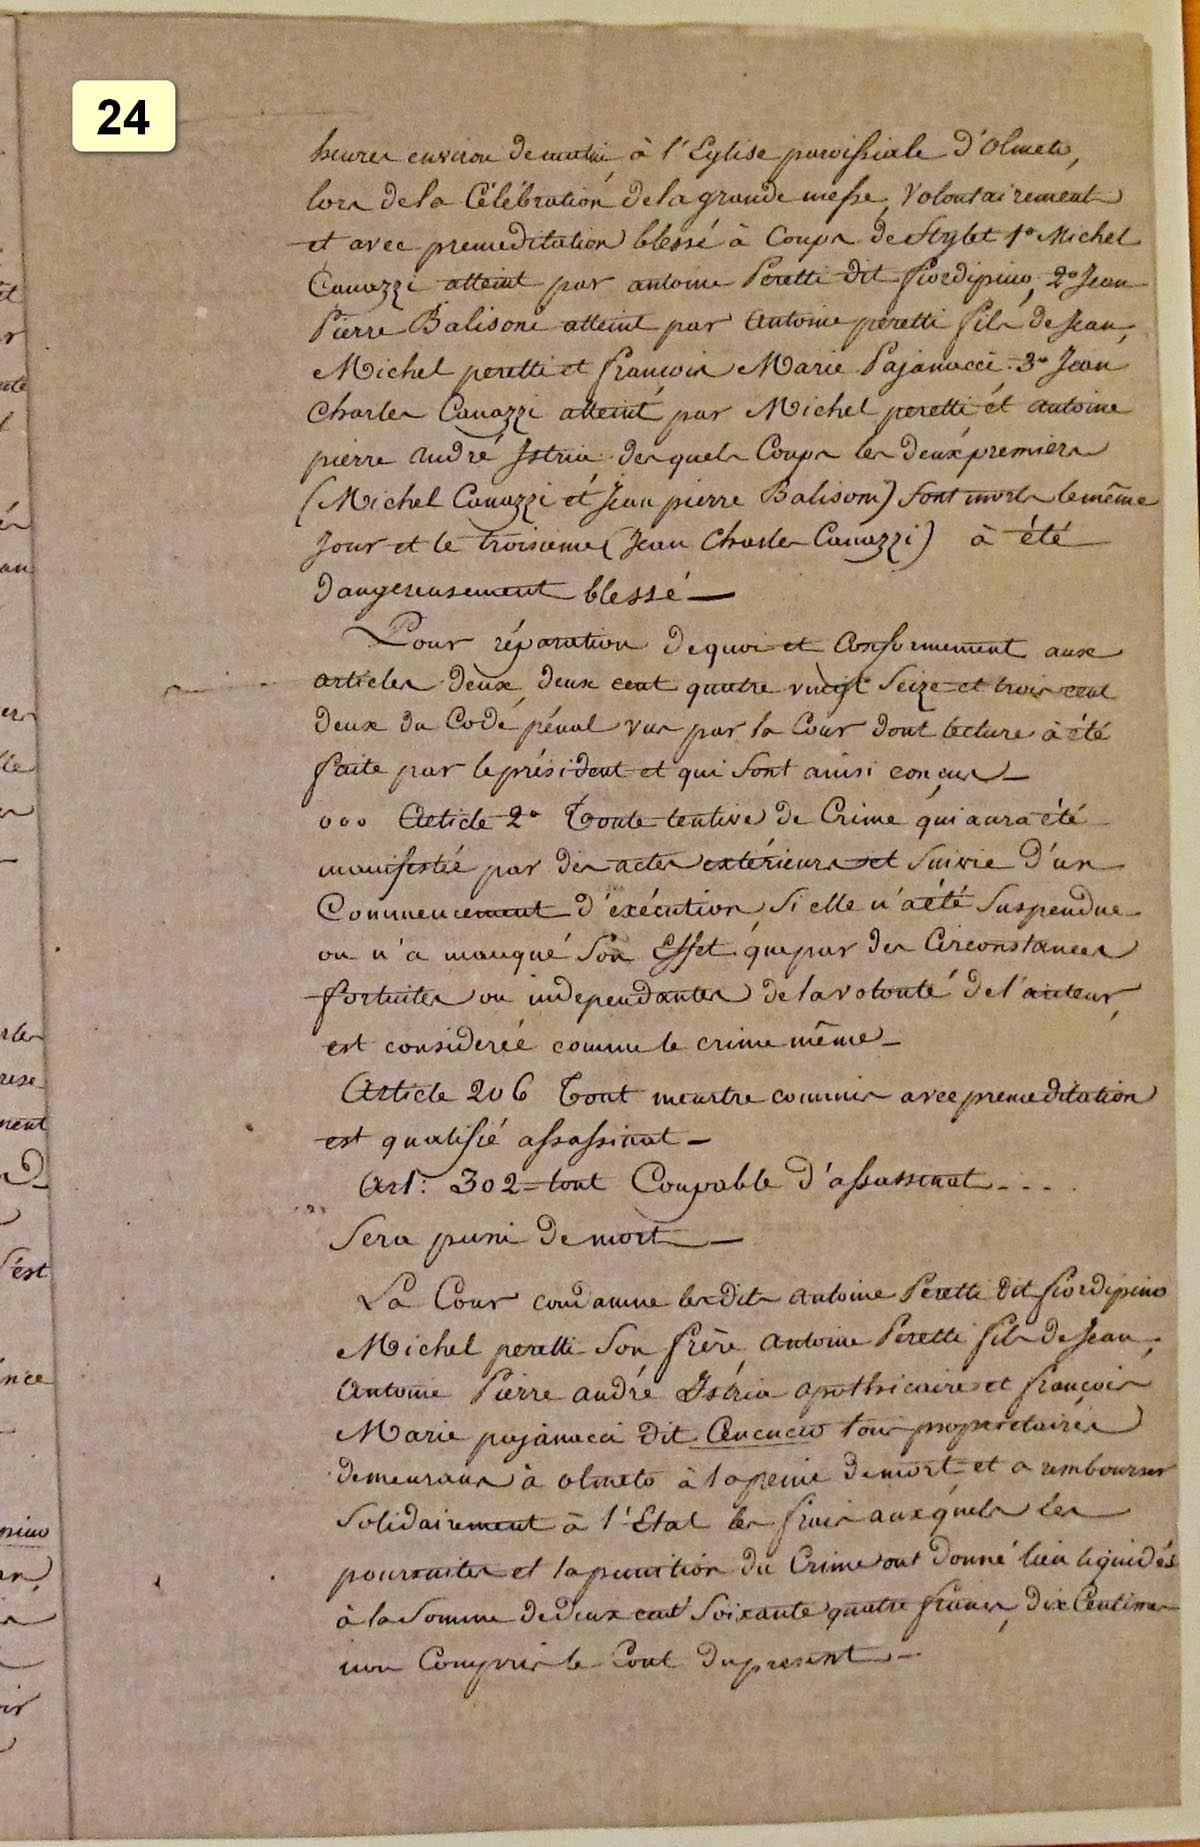 24
heures environ de matin, à l'Eglise paroissiale d'Olmeto,
lors de la Célébration de la grande messe, volontairement
et avec premeditation blessé à Coups de Stylet 1º Michel
Canazzi atteint par antoine Peretti dit fiordipino, 2º Jean
Pierre Balisoni atteint par Antoine peretti fils de Jean,
Michel peretti et françois Marie Pajanacci. 3º Jean
Charles Canazzi atteint par Michel peretti et antoine
pierre André Istria desquels Coups les deux premiers
(Michel Canazzi et Jean pierre Balisoni) sont morts le même
Jour et le troisieme (Jean Charles Canazzi) à été
dangereusement blessé —
Pour réparation de quoi et Conformement aux
articles deux, deux cent quatre vingt Seize et trois cent
deux du Code pénal vus par la Cour dont lecture à été
faite par le président et qui sont ainsi conçus —
ooo Article 2º Toute tentive de Crime qui aura été
manifestée par des actes extérieurs et Suivie d'un
Commencement d'exécution, Si elle n'a été Suspendue
ou n'a manqué Son Effet que par des Circonstances
fortuites ou independantes de la volonté de l'auteur,
est considereé comme le crime même —
Article 206 Tout meurtre commis avec premeditation
est qualifié assassinat —
Art: 302 = tout Coupable d'assassinat - - -
Sera puni de mort —
La Cour condamne lesdits antoine Peretti dit fiordipino
Michel peretti Son frère, antoine Peretti fils de Jean,
Antoine Pierre andré Istria apothicaire et françois
Marie pajanacci dit tous propriétaires
demeurans à olmeto à la peine de mort et a rembourser
Solidairement à l'Etat les frais auxquels les
poursuites et la punition du Crime ont donné lieu liquidés
à la Somme de deux cent Soixante quatre francs, dix Centimes
non Compris le Cout du present —